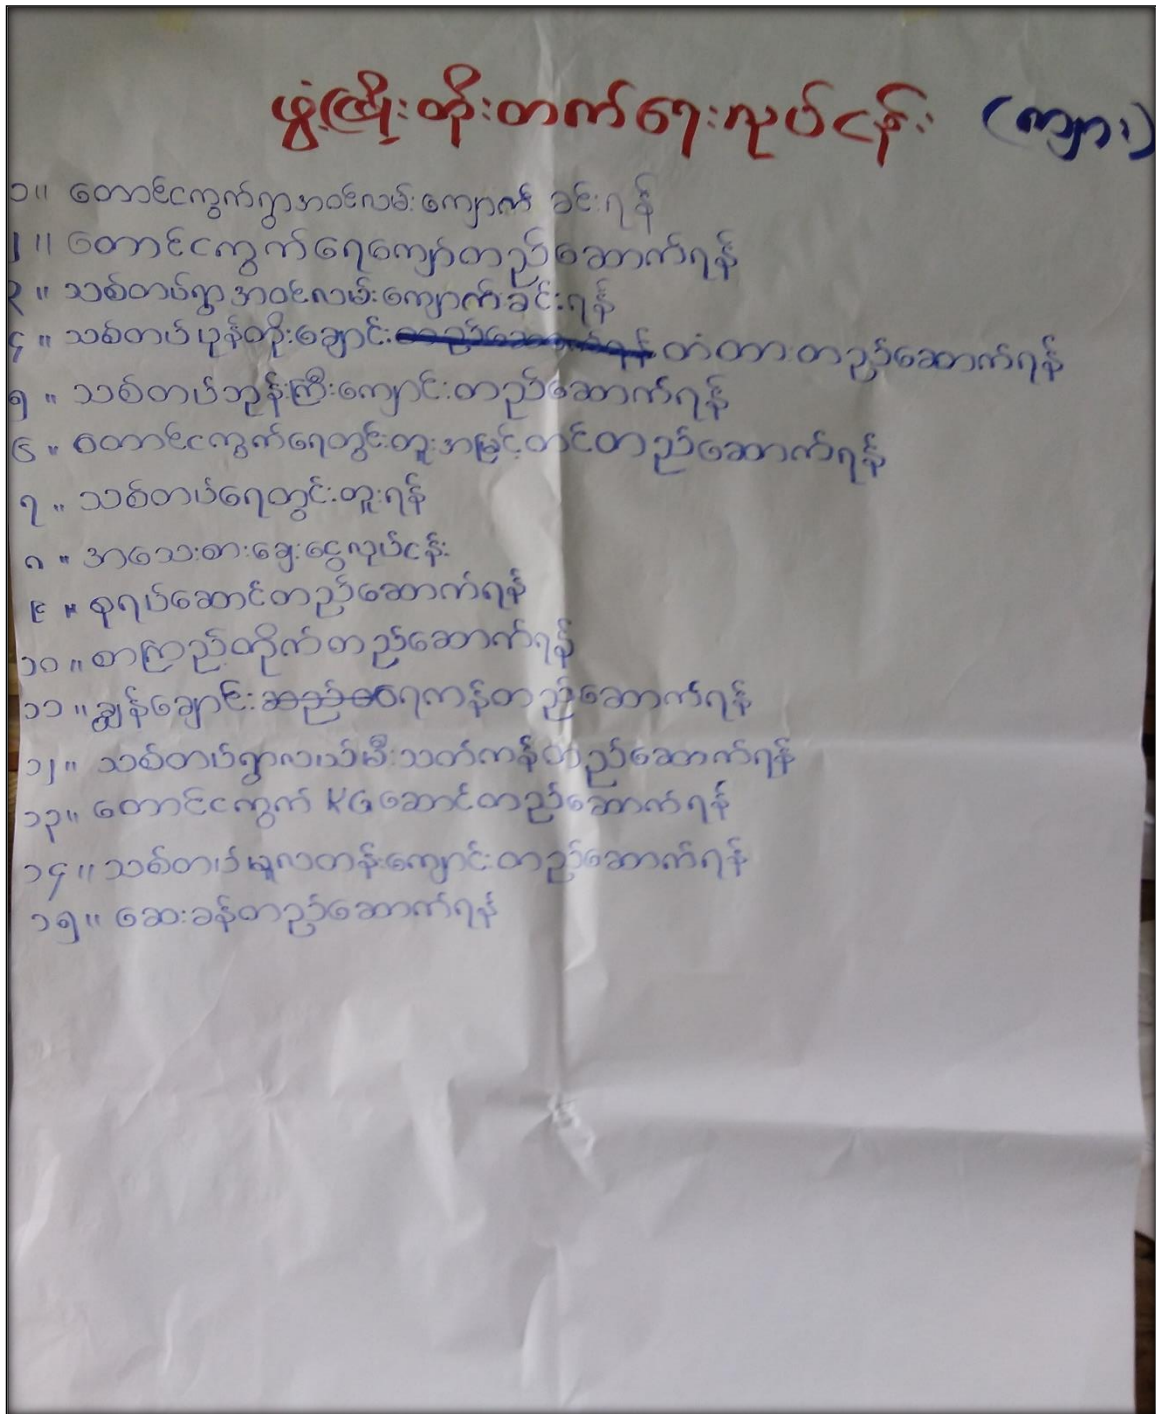 ဖွံ့ဖြိုးတိုးတက်ရေးလုပ်ငန်း (ကျား)
၁။ တောင်ငကွက်ရွာအဝင်လမ်းကျောက် ခင်းရန်
၂။ တောင်ငကွက်ရေကျော်တည်ဆောက်ရန်
၃။ သစ်တပ်ရွာအဝင်လမ်းကျောက်ခင်းရန်
၄။ သစ်တပ်ပုန်တိုးချောင်း တံတားတည်ဆောက်ရန်
၅။ သစ်တပ်ဘုန်းကြီးကျောင်းတည်ဆောက်ရန်
၆။ တောင်ငကွက်ရေတွင်းတူးအမြင့်တင်တည်ဆောက်ရန်
၇။ သစ်တပ်ရေတွင်းတူးရန်
၈။ အသေးစားချေးငွေလုပ်ငန်း
၉။ စုရပ်ဆောင်တည်ဆောက်ရန်
၁၀။ စာကြည့်တိုက်တည်ဆောက်ရန်
၁၁။ ချွန်ချောင်း ရေကန်တည်ဆောက်ရန်
၁၂။ သစ်တပ်ရွာလယ်မီးသတ်ကန်တည်ဆောက်ရန်
၁၃။ တောင်ငကွက် KG ဆောင်တည်ဆောက်ရန်
၁၄။ သစ်တပ်မူလတန်းကျောင်းတည်ဆောက်ရန်
၁၅။ ဆေးခန်တည်ဆောက်ရန်